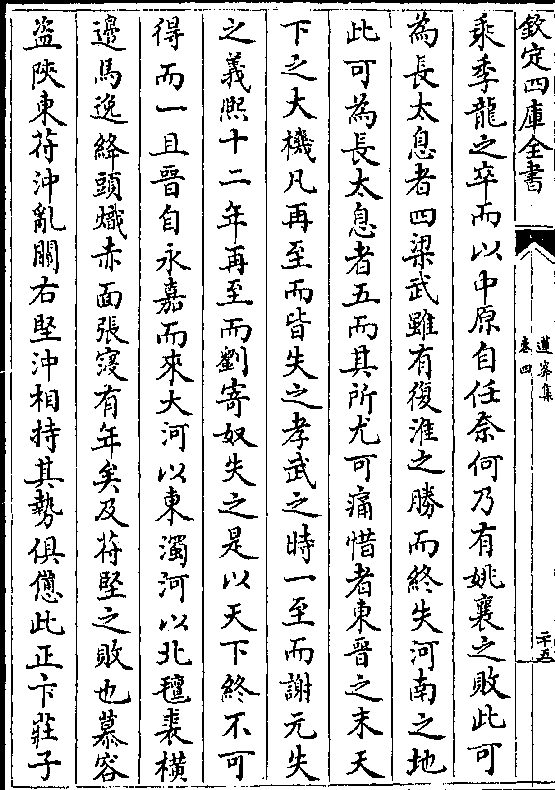 欽定四庫全書
蓮峯集
卷四
二十五
乘季龍之卒而以中原自任奈何乃有姚襄之敗此可
為長太息者四梁武雖有復淮之勝而終失河南之地
此可為長太息者五而其所尤可痛惜者東晉之末天
下之大機凡再至而皆失之孝武之時一至而謝元失
之義熙十二年再至而劉寄奴失之是以天下終不可
得而一且晉自永嘉而來大河以東濁河以北氊裘橫
邊馬逸絳頭熾赤面張寖有年矣及苻堅之敗也慕容
盜陜東苻沖亂關右堅沖相持其勢俱憊此正卞莊子